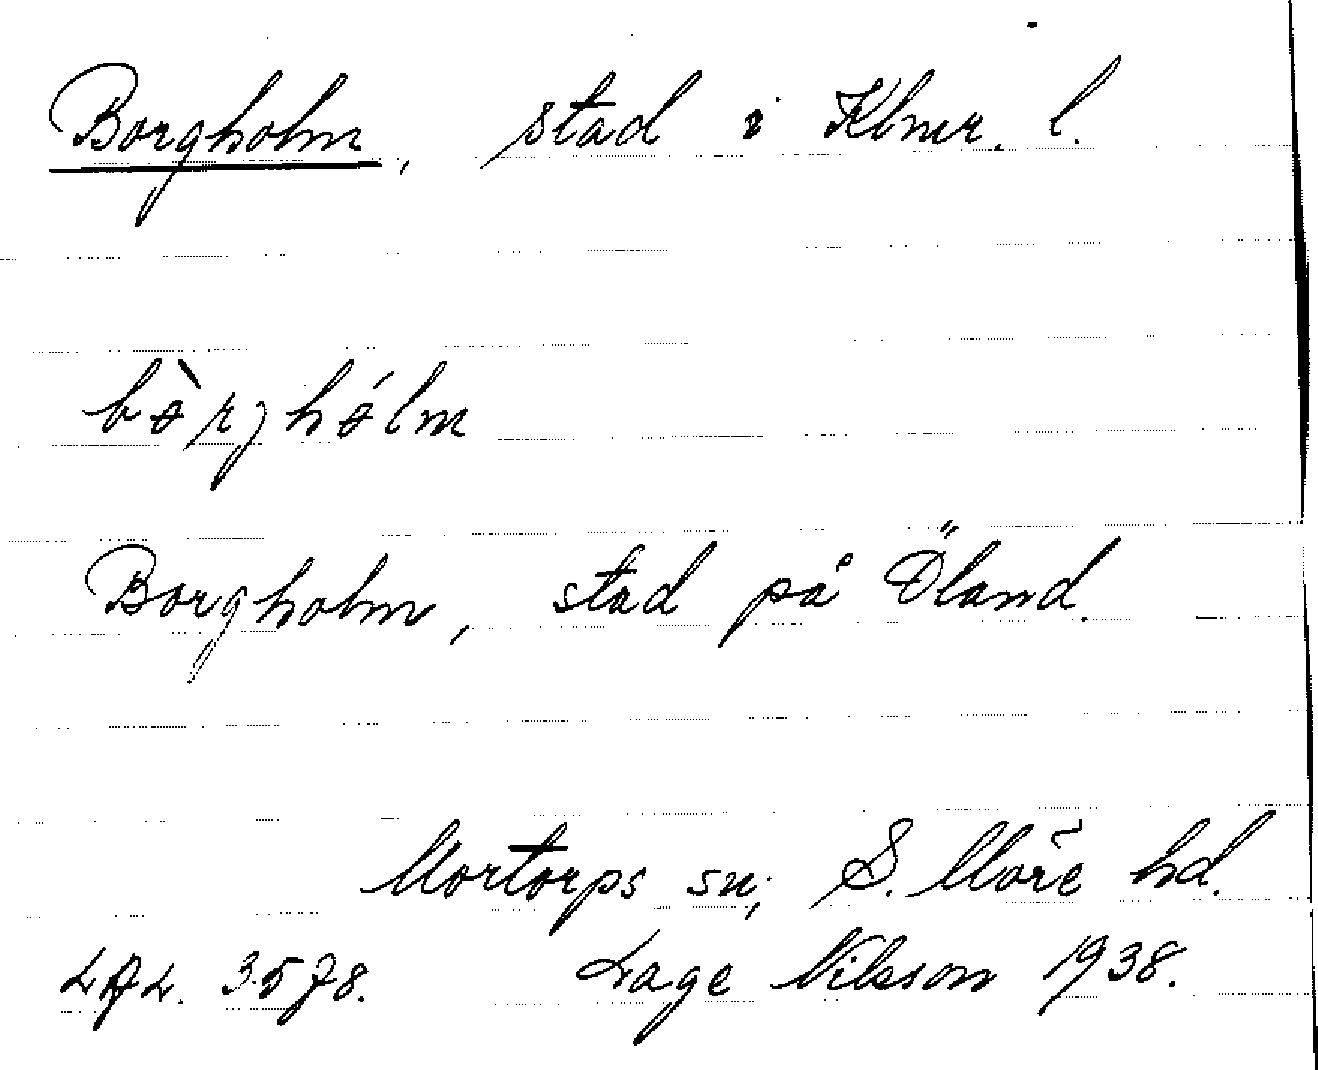 Borgholm, stad i Klmr. l.
bòrjhólm
Borgholm, stad på Öland.
Mortorps sn, S. Möre hd.
LAL. 3578. Lage Nilsson 1938.